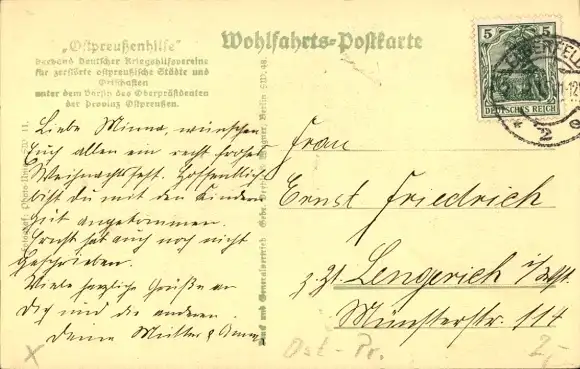 „Ostpreußenhilfe"
Verband Deutscher Kriegshilfsvereine
für zerstörte ostpreußische Städte und
Ortschaften
unter dem Vorsitz des Oberpräsidenten
der Provinz Ostpreußen.
Wohlfahrts-Postkarte
5 5
DEUTSCHES REICH
Liebe Minna, wünschen
Euch allen ein recht frohes
Weihnachtsfest. Hoffentlich
bist Du mit den Kindern
gut angekommen.
Ernst hat auch noch nicht
geschrieben.
Viele herzliche Grüße an
Dich und die anderen.
Deine Mutter &
Druck und Generalvertrieb Gebr. Wagner, Berlin SW. 48.
Frau
Ernst Friedrich
z. Zt. Lengerich i/Westf.
Münsterstr. 114
Ost-Pr.
2,-